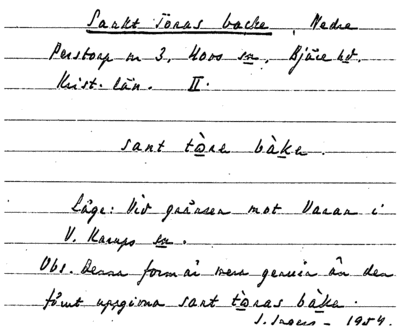 Sankt Töras backe, Nedre
Perstorp nr 3, Hovs sn, Bjäre hd.
Krist. län. II.
sant tò̱re bàke.
Läge: Vid gränsen mot Varan i
V. Karups sn.
Obs. Denna form är mera genuin än den
förut uppgivna sant tò̱ras bàke.
S. Ingers – 1954.